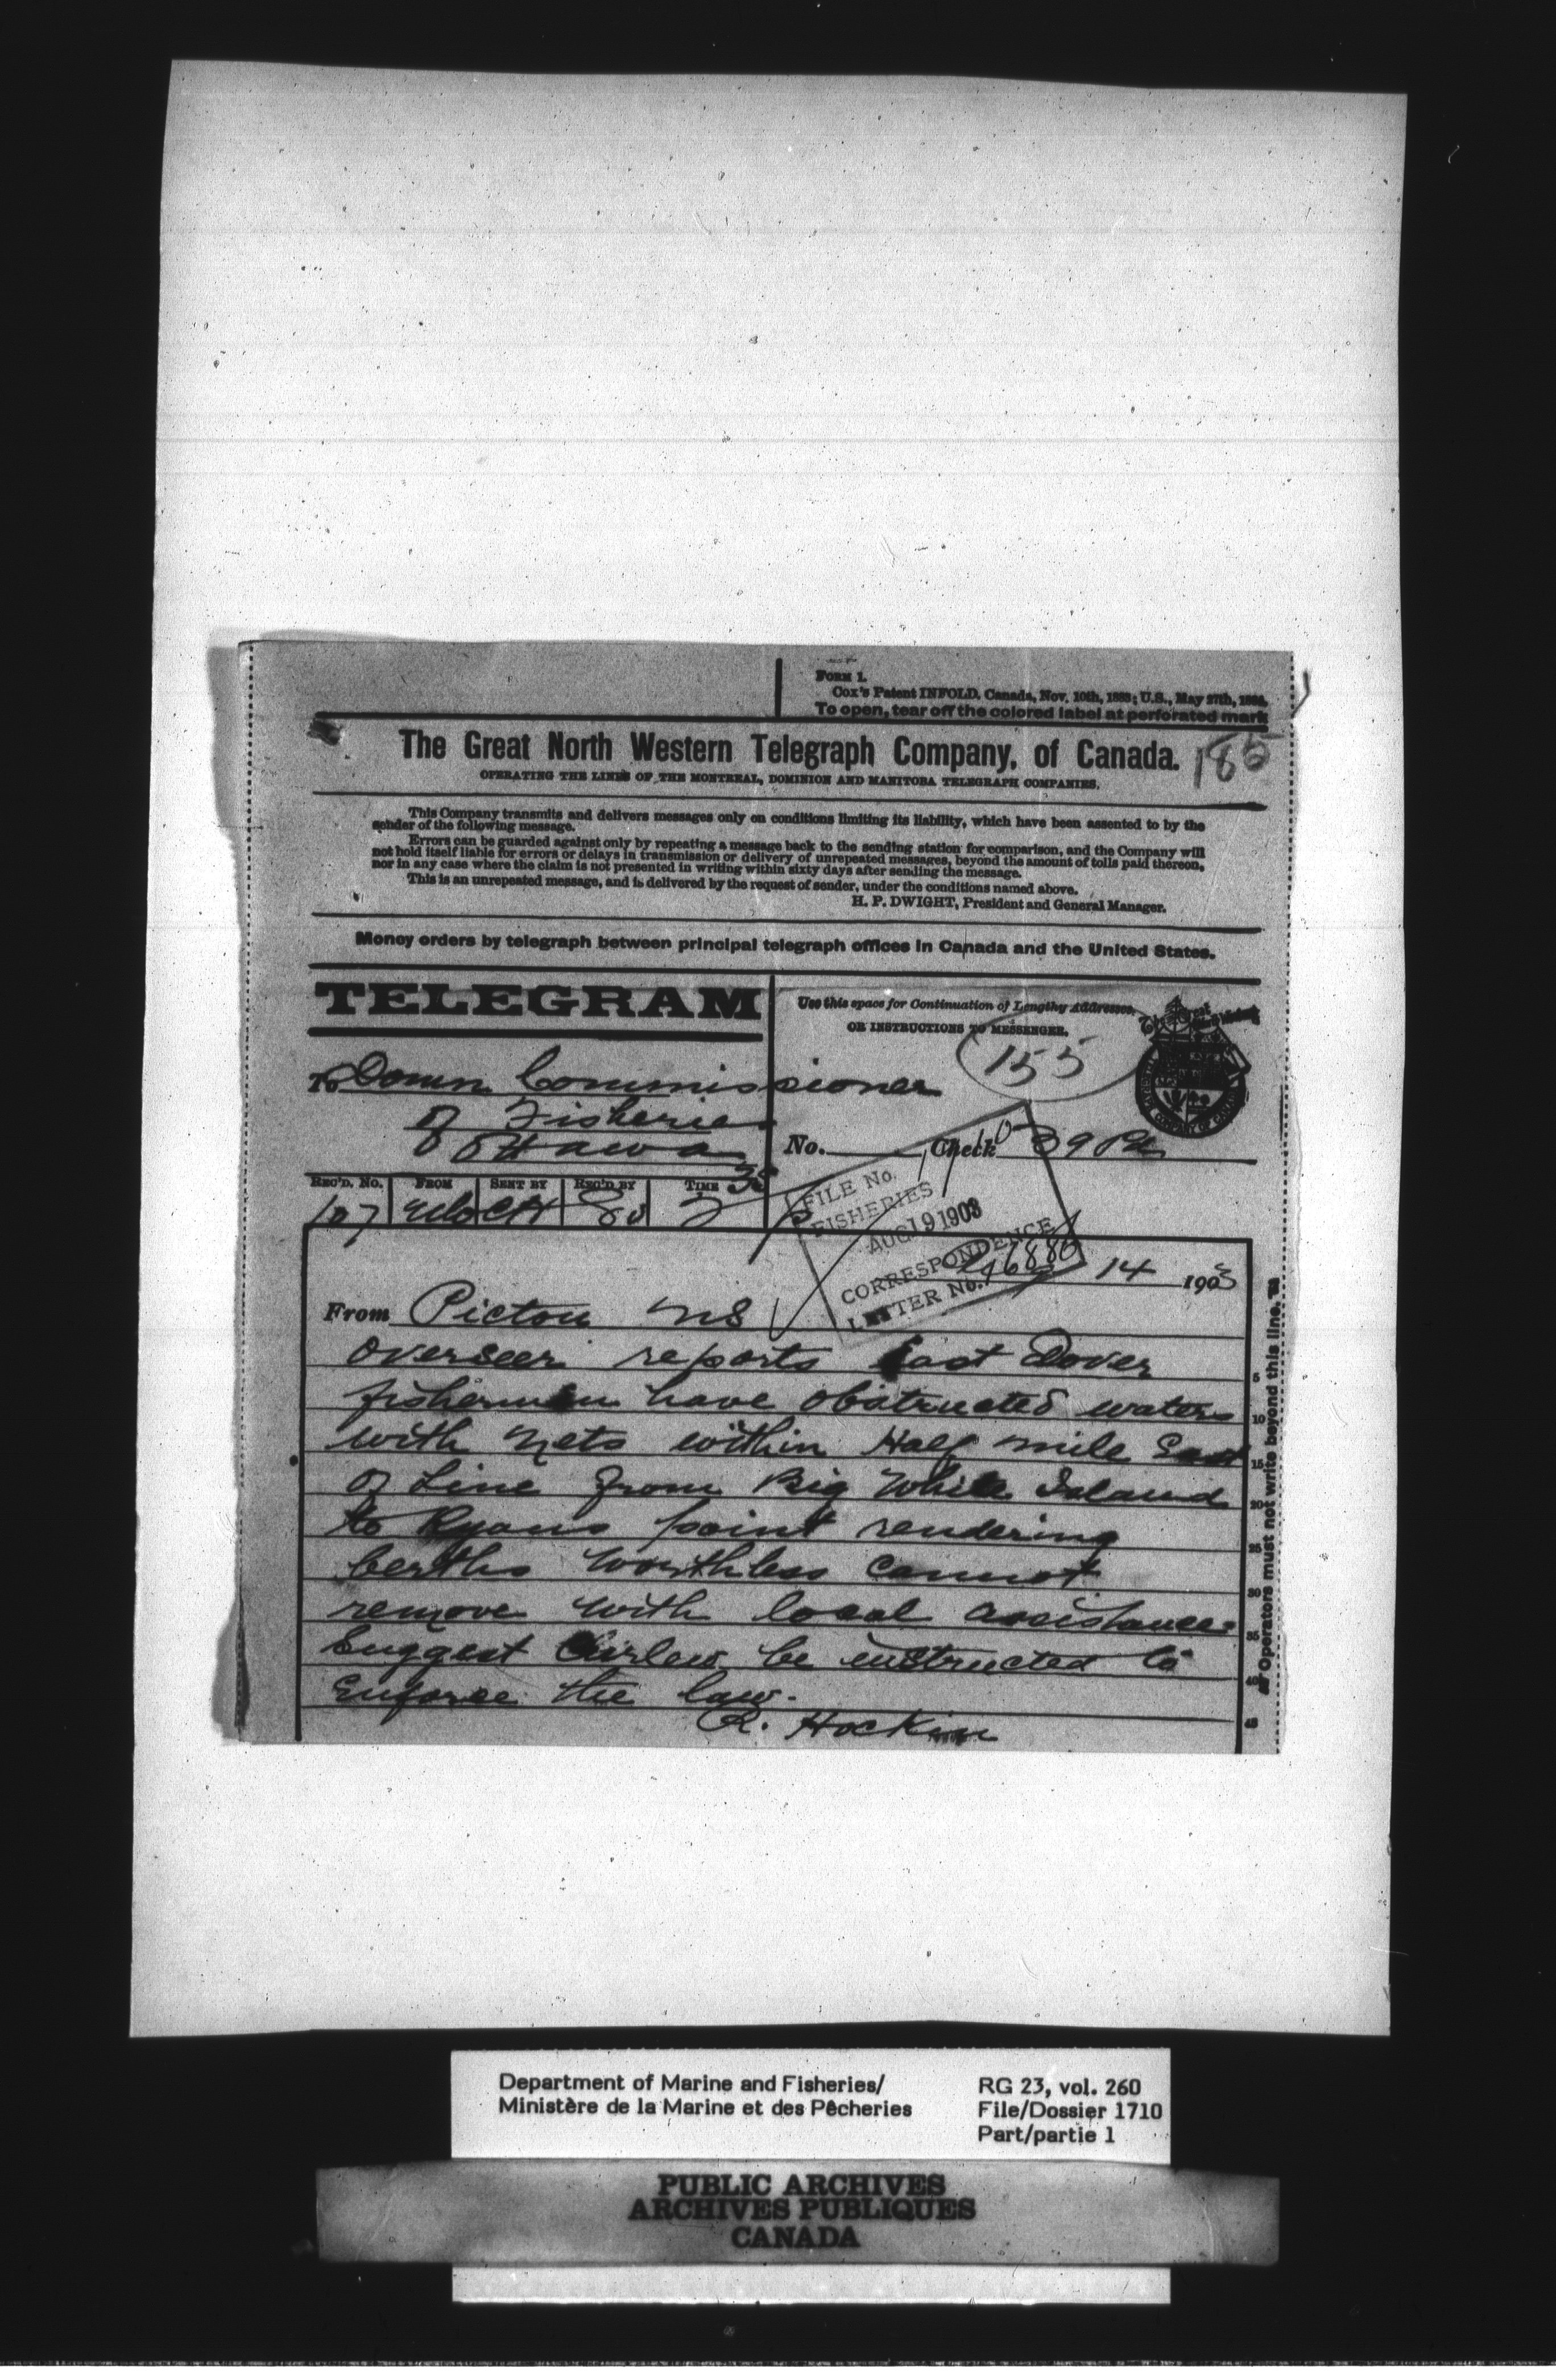 FORM 1.
Cox's Patent INFOLD, Canada, Nov. 10th, 1883; U.S., May 27th, 1884.
To open, tear off the colored label at perforated mark
The Great North Western Telegraph Company, of Canada.
185
OPERATING THE LINES OF THE MONTREAL, DOMINION AND MANITOBA TELEGRAPH COMPANIES.
This Company transmits and delivers messages only on conditions limiting its liability, which have been assented to by the
sender of the following message.
Errors can be guarded against only by repeating a message back to the sending station for comparison, and the Company will
not hold itself liable for errors or delays in transmission or delivery of unrepeated messages, beyond the amount of tolls paid thereon,
nor in any case where the claim is not presented in writing within sixty days after sending the message.
This is an unrepeated message, and is delivered by the request of sender, under the conditions named above.
H. P. DWIGHT, President and General Manager.
Money orders by telegraph between principal telegraph offices in Canada and the United States.
TELEGRAM
Use this space for Continuation of Lengthy Addresses,
OR INSTRUCTIONS TO MESSENGER.
155
To Domn Commissioner
of Fisheries
Ottawa
No. Check 39
REC'D. NO. FROM SENT BY REC'D BY TIME
107
FILE No.
FISHERIES
AUG 19 1903
CORRESPONDENCE
LETTER No.
14 1903
From Pictou NS
Overseer reports East Dover
fishermen have obstructed waters
with nets within Half mile East
of Line from Big White Island
to Ryans point rendering
berths worthless cannot
remove with local assistance
Suggest Curlew be instructed to
Enforce the law.
R. Hockin
5
10
15
20
25
30
35
40
45
Operators must not write beyond this line.
Department of Marine and Fisheries/
Ministère de la Marine et des Pêcheries
RG 23, vol. 260
File/Dossier 1710
Part/partie 1
PUBLIC ARCHIVES
ARCHIVES PUBLIQUES
CANADA